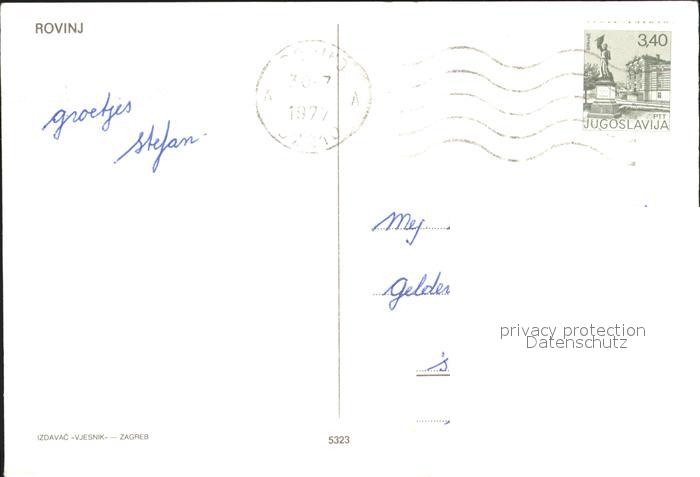 ROVINJ
groetjes
stefan.
30-7
1977
A A
3,40
PTT
JUGOSLAVIJA
Mej
Gelder
's
privacy protection
Datenschutz
IZDAVAČ «VJESNIK» — ZAGREB
5323